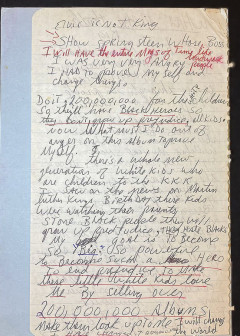 Elvis is not King
Show Spring steen whose Boss
I will have the entire
I was very very angry
I HAD to pause my self and
change things.
Do it 200,000,000 for the children
So they don't grow up prejudice,
now. What must I do out of
anger on this Album to prove
MYself
there is a whole new
generation of white kids who
are children to the KKK
I saw on the news on Martin
luther Kings Birthday these kids
were watching their parents
STONE Black people they will
grow up prejudice, they hate Blacks
my goal is to become
So "Big" So powerful
to Become such a Hero
to end prejudice. to make
these little white kids love
me By selling over
200,000,000 Album
make them look up to me I will change
the world